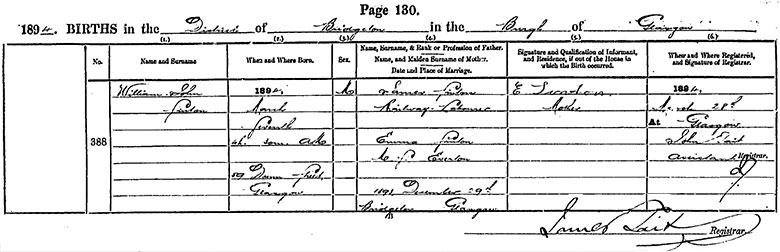 Page 130.
1894. BIRTHS in the District of Bridgeton in the Burgh of Glasgow
(1.) (2.) (3.) (4.) (5.) (6.)
No. Name and Surname When and Where Born. Sex. Name, Surname, & Rank or Profession of Father. Name, and Maiden Surname of Mother. Date and Place of Marriage. Signature and Qualification of Informant, and Residence, if out of the House in which the Birth occurred. When and Where Registered, and Signature of Registrar.
388
William John
1894,
March
Seventh
4h. AM
59
Street
Glasgow
M
James
Railway Labourer
Emma
M.S. Everton
1891 December 29th
Bridgeton Glasgow
E.
Mother
1894,
March 28th
At Glasgow
John Tait
Assistant Registrar.
James Tait Registrar.